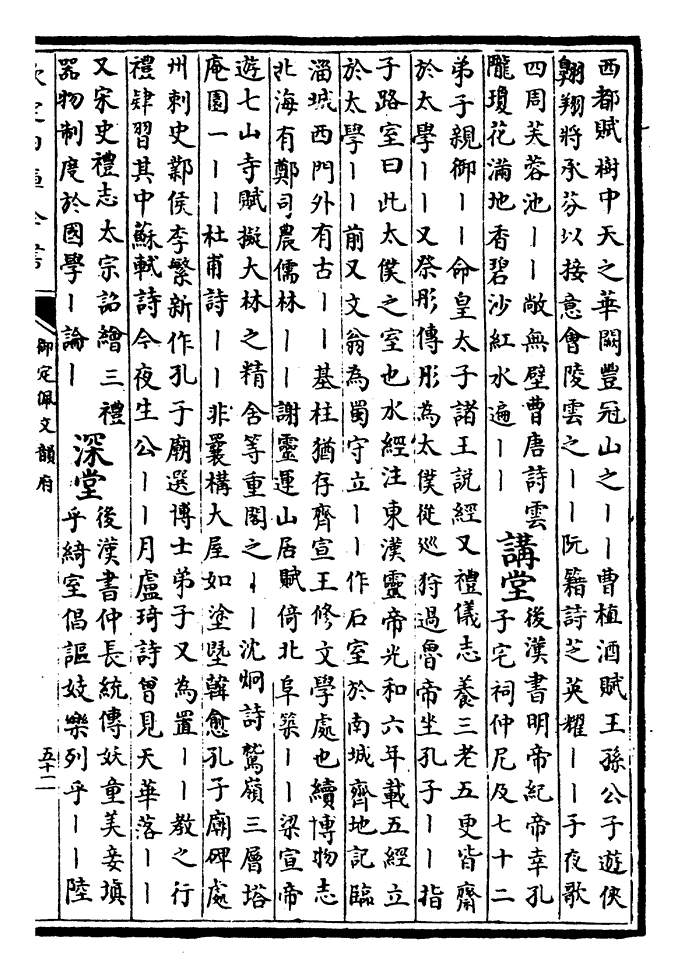 西都賦樹中天之華闕豐冠山之丨丨曹植酒賦王孫公子遊俠
翺翔將承芬以接意會陵雲之丨丨阮籍詩芝英耀丨丨子夜歌
四周芙蓉池丨丨敞無壁曹唐詩雲
朧瓊花滿地香碧沙紅水遍丨丨
講堂
後漢書明帝紀帝幸孔
子宅祠仲尼及七十二
弟子親御丨丨命皇太子諸王説經又禮儀志養三老五更皆齋
於太學丨丨又祭肜傳肜為太僕從巡狩過魯帝坐孔子丨丨指
子路室曰此太僕之室也水經注東漢靈帝光和六年載五經立
於太學丨丨前又文翁為蜀守立丨丨作石室於南城齊地記臨
淄城西門外有古丨丨基柱猶存齊宣王修文學處也續博物志
北海有鄭司農儒林丨丨謝靈運山居賦倚北阜築丨丨梁宣帝
遊七山寺賦擬大林之精舍等重閣之丨丨沈炯詩鷲嶺三層塔
庵園一丨丨杜甫詩丨丨非曩構大屋如塗墍韓愈孔子廟碑處
州刺史鄴侯李繁新作孔子廟選博士弟子又為置丨丨教之行
禮肄習其中蘇軾詩今夜生公丨丨月盧琦詩曾見天華落丨丨
又宋史禮志太宗詔繪三禮
器物制度於國學丨論丨
深堂
後漢書仲長統傳妖童美妾填
乎綺室倡謳妓樂列乎丨丨陸
欽定四庫全書
御定佩文韻府
五十二